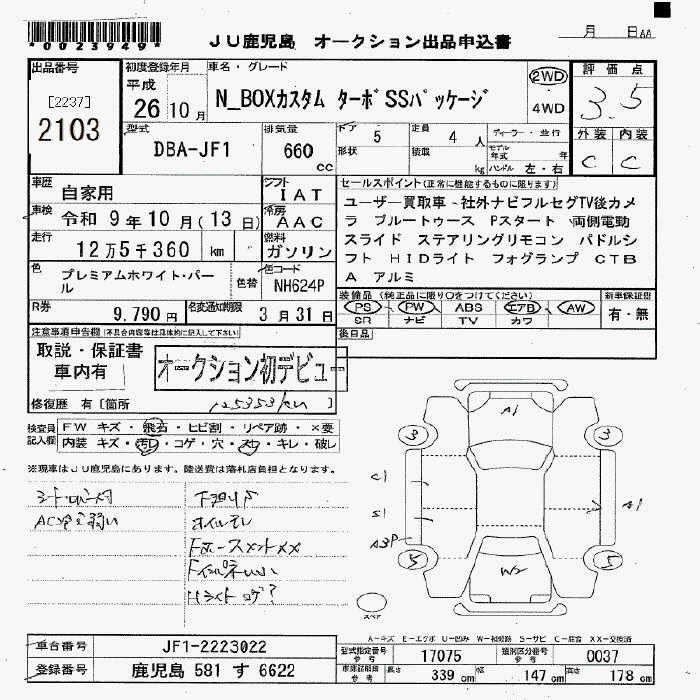 *0023949*
JU鹿児島 オークション出品申込書
月 日
出品番号
[2237]
2103
初度登録年月
平成
26年10月
車名・グレード
N_BOXカスタム ターボSSパッケージ
2WD
・
4WD
評価点
3.5
外装 内装
C C
型式
DBA-JF1
排気量
660
cc
ドア 5
形状
定員 4 人
積載 kg
ディーラー・並行
モデル年式 年
ハンドル 左・右
車歴 自家用
シフト IAT
車検 令和 9年10月(13日)
冷房 AAC
走行 12万5千360 km
燃料 ガソリン
色 プレミアムホワイト・パール
色替
色コード NH624P
R券 9,790円
名変通知期限 3月31日
セールスポイント(正常に機能するものに限ります)
ユーザー買取車 社外ナビフルセグTV後カメ
ラ ブルートゥース Pスタート 両側電動
スライド ステアリングリモコン パドルシ
フト HIDライト フォグランプ CTB
A アルミ
装備品(純正品に限り○をつけてください)
PS・PW・ABS・エアB・AW
SR ナビ TV カワ
新車保証書
有・無
後日品
注意事項申告欄(不具合内容等は具体的に記入して下さい)
取説・保証書
車内有
オークション初デビュー
修復歴 有[箇所 125353km]
検査員記入欄
FW キズ・飛石・ヒビ割・リペア跡・×要
内装 キズ・汚れ・コゲ・穴・スレ・キレ・破レ
※現車はJU鹿児島にあります。陸送費は落札店負担となります。
AC冷え弱い
下廻りサ
オイルモレ
A1
3 3
C1
S1
A1
A3P
5 5
W2
スペア
A-キズ E-エクボ U-凹み W-補修跡 S-サビ C-腐食 XX-交換済
車台番号 JF1-2223022
登録番号 鹿児島 581 す 6622
型式指定番号 参考 17075
類別区分番号 参考 0037
車庫証明用 参考 長さ 339 cm 幅 147 cm 高さ 178 cm